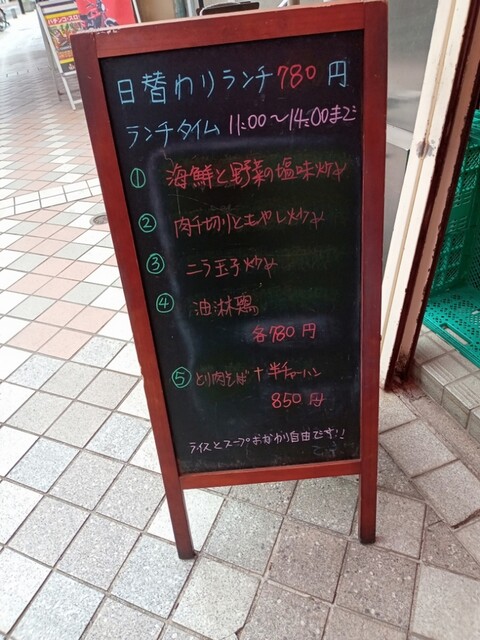 日替わりランチ780円
ランチタイム 11:00〜14:00まで
① 海鮮と野菜の塩味炒め
② 肉千切りともやし炒め
③ ニラ玉子炒め
④ 油淋鶏
各780円
⑤ とり肉そば+半チャーハン
850円
ライスとスープおかわり自由です!!